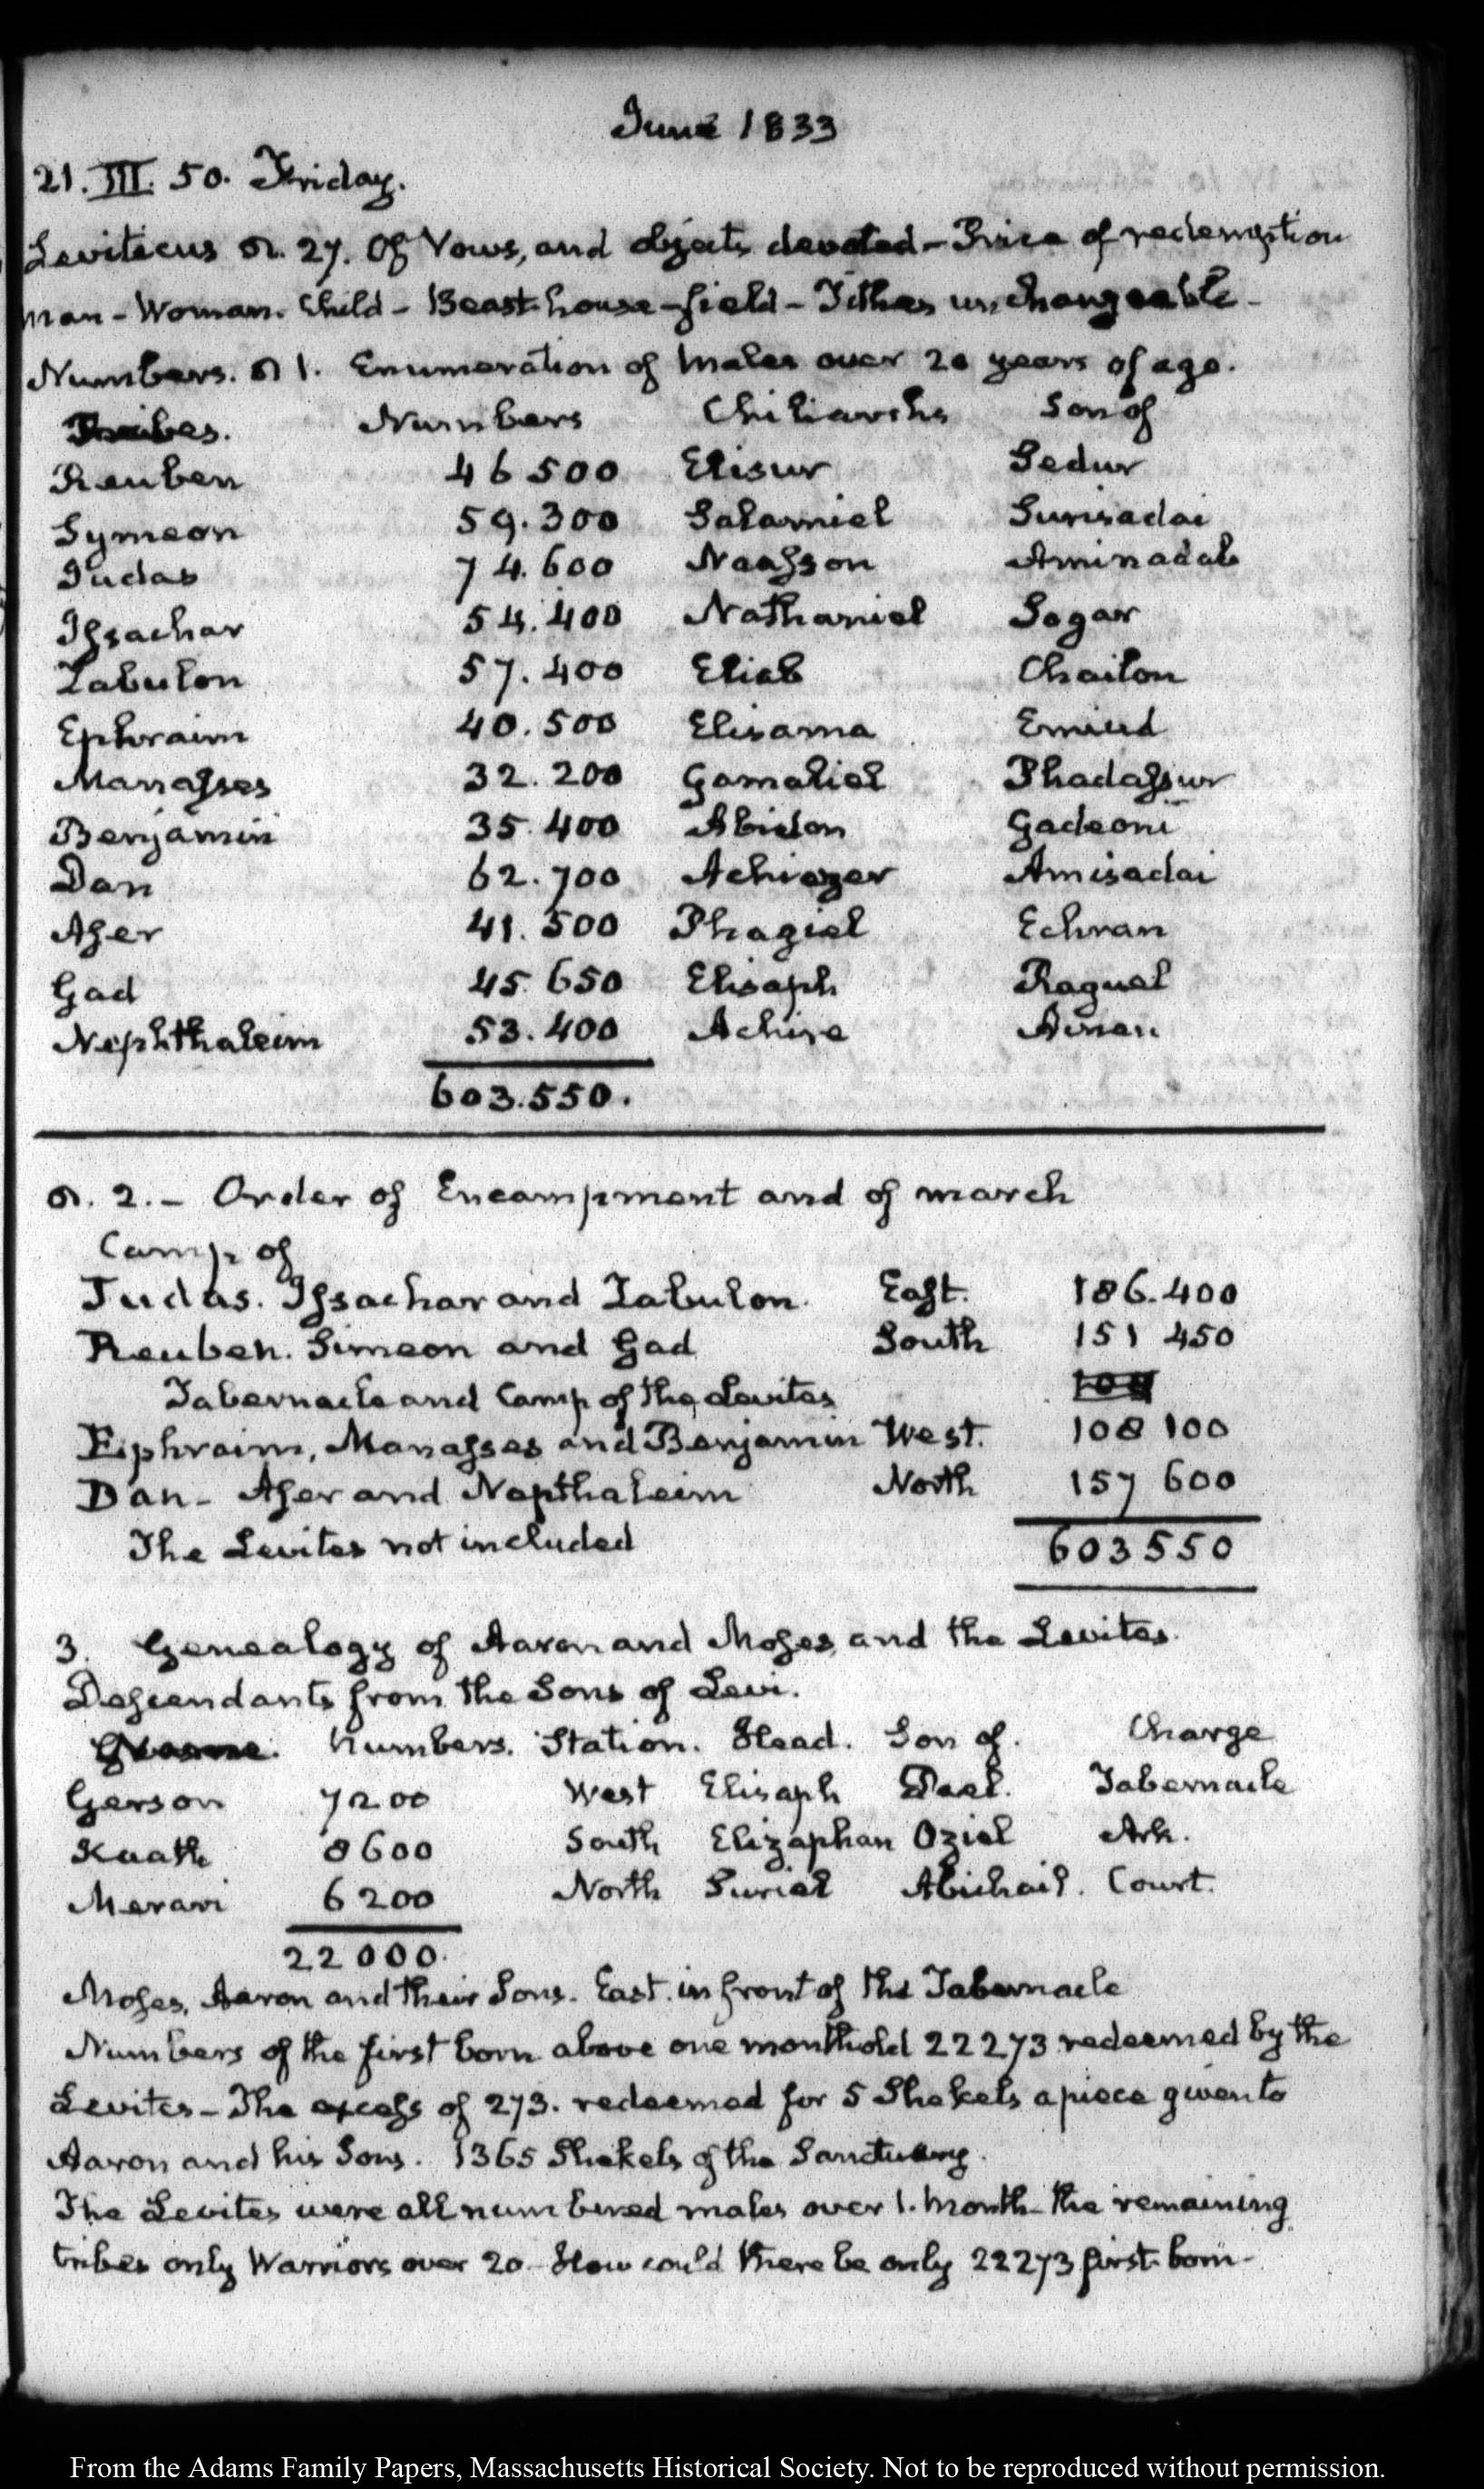 June 1833
21. III. 50. Friday.
Leviticus n. 27. Of Vows, and objects devoted – Price of redemption
Man – Woman. Child – Beast house – field – Tithes unchangeable –
Numbers. n 1. Enumeration of Males over 20 years of age.
Tribes. Numbers Chiliarchs Son of
Reuben 46 500 Elisur Sedur
Symeon 59.300 Salamiel Surisadai
Judas 74.600 Naasson Aminadab
Issachar 54.400 Nathaniel Sogar
Zabulon 57.400 Eliab Chailon
Ephraim 40.500 Elisama Emiud
Manasses 32.200 Gamaliel Phadassur
Benjamin 35.400 Abidon Gadeoni
Dan 62.700 Achiezer Amisadai
Aser 41.500 Phagiel Echran
Gad 45 650 Elisaph Raguel
Nephthaleim 53.400 Achire Ainan
603.550.
n. 2. – Order of Encampment and of march
Camp of
Judas. Issachar and Zabulon. East. 186.400
Reuben. Simeon and Gad South 151 450
Tabernacle and Camp of the Levites 108
Ephraim, Manasses and Benjamin West. 108 100
Dan – Aser and Nepthaleim North 157 600
The Levites not included 603550
3. Genealogy of Aaron and Moses, and the Levites.
Descendants from the Sons of Levi.
Numbers. Station. Head. Son of. Charge
Gerson 7200 West Elisaph Dael. Tabernacle
Kaath 8600 South Elizaphan Oziel Ark.
Merari 6200 North Suriel Abichail. Court.
22000.
Moses, Aaron and their Sons. East. in front of the Tabernacle
Numbers of the first born above one month old 22273 redeemed by the
Levites – The excess of 273. redeemed for 5 Shekels apiece given to
Aaron and his Sons. 1365 Shekels of the Sanctuary.
The Levites were all numbered males over 1. Month – the remaining
tribes only Warriors over 20 – How could there be only 22273 first born –
From the Adams Family Papers, Massachusetts Historical Society. Not to be reproduced without permission.